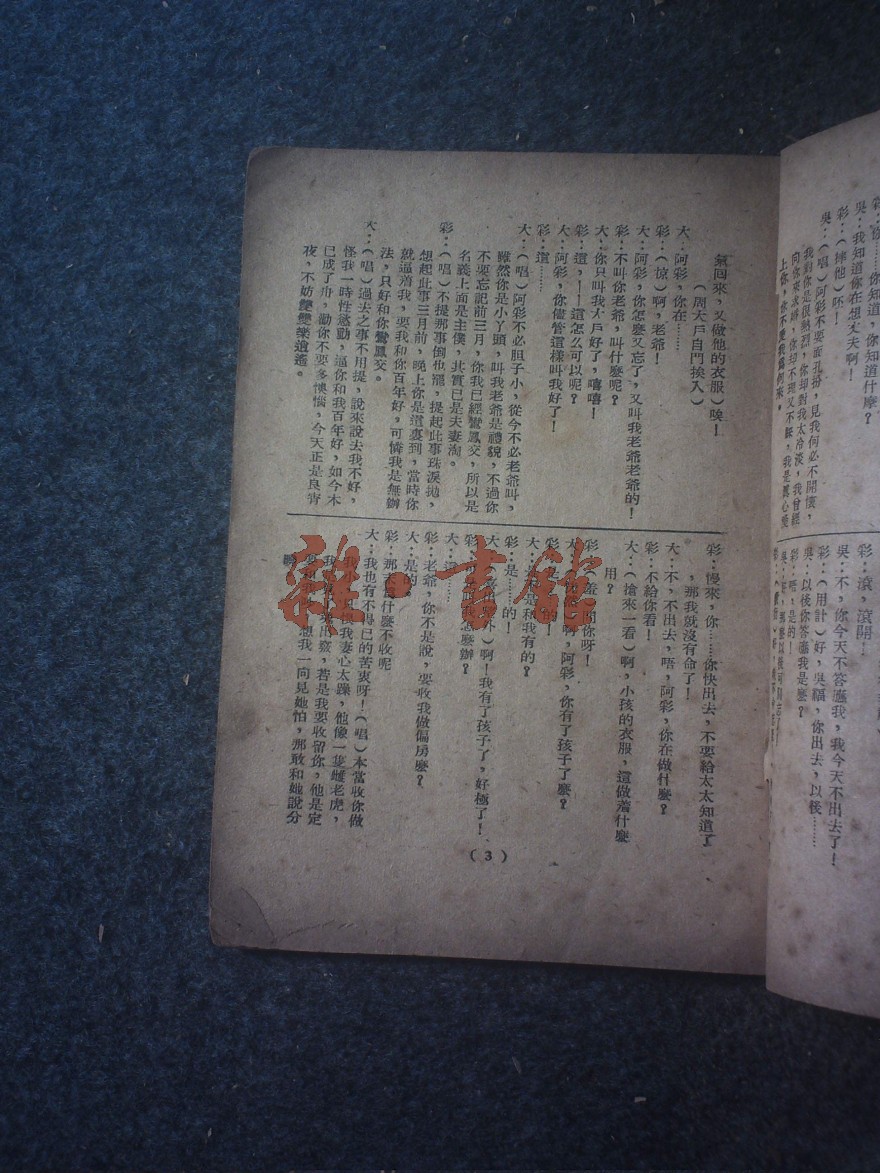 彩：你……你知道，你知道什麼？
吳：我知道你在想丈夫啊！
彩：（摔他）呸！
吳：（唱）阿彩不要面孔扮，見我何必不開懷，
我對你是很熱烈，你却對我太冷淡，我曾經
彩：滾，滾開！
吳：不，你今天不答應我，我今天不出去了！
彩：（用計）好，吳福，你出去，以後……
吳：以後你答應我是麼？
彩：唔，是的！
氣回來，又做他的衣服）唉！
（周大戶自門挨入）
大：阿彩，你在……
彩：（惊）啊，老爷！
大：阿彩，你怎麽又忘了，又叫我老爷老爷的！
彩：不叫你老爷，叫什麽呢？
大：你只叫我大戶好了，嘻嘻！
彩：這，！！這怎么可以呢？
大：阿彩，你儘管這樣叫我好了！
彩：這……
大：（唱）阿彩不必胆子小，從今不必老爷叫，
雖然你是小丫頭，叫我老爺是禮貌，不過你
不要忘記前三月，你我已經鸞鳳交，所以是
名義上面是主僕，其實已是夫妻淘。
彩：（唱）不提那事倒也罷，提起此事珠淚抛，
想起此事三月前，晚上你是這裏到，當時你
就逼着我，要我和你百年好，可憐我是無辦
法，只好和你鸞鳳交。
大：（唱）過去之事不用提，說來說去我不好，
怪我一時性慾動，逼你和我百年好，如今木
已成了舟，勸你不要多懊惱，今天正是良宵
夜，不妨雙雙樂逍遙。
彩：慢來，你……你快出去，不要給太太知道了
，那我就沒有命了！
大：不，不出去，唔，阿彩，你在做什麽？
彩：不給你看！
大：（搶來一看）啊，小孩的衣服，這做着什麽
用？
彩：（羞）問你呀！
大：啊，阿彩，你有了孩子了麽？
彩：是的！
大：是和我有的？
彩：是……的！
大：啊！我有了孩子了，好極了！
彩：怎麽辦？
大：這……
彩：老爷，你不是說，要收我做偏房麽？
大：是的
彩：那末爲什麼不收呢
大：我也有不得已的苦衷呀！（唱）本當收你做
我妻心太躁，他像一隻雌老虎，
若是我要收留你，他是定
我一向見她怕，那敢和她說分
（3）
雜·書館